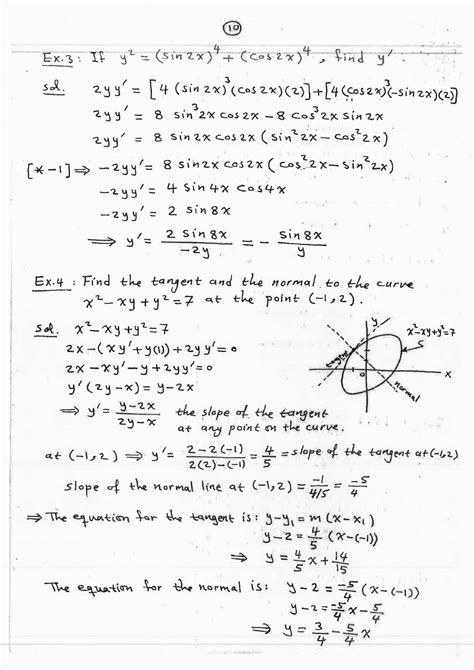 10
Ex.3: If y² = (sin2x)⁴ + (cos2x)⁴, find y'.
sol. 2yy' = [4 (sin2x)³(cos2x)(2)]+[4(cos2x)³(-sin2x)(2)]
2yy' = 8 sin³2x cos2x - 8 cos³2x sin2x
2yy' = 8 sin2x cos2x (sin²2x - cos²2x)
[*-1] ⇒ -2yy' = 8 sin2x cos2x (cos²2x - sin²2x)
-2yy' = 4 sin4x cos4x
-2yy' = 2 sin8x
⇒ y' = 2 sin8x / -2y = - sin8x / y
Ex.4: Find the tangent and the normal to the curve
x²-xy+y²=7 at the point (-1,2).
sol. x²-xy+y²=7
2x-(xy'+y(1))+2yy'=0
2x-xy'-y+2yy'=0
y'(2y-x)=y-2x
⇒ y' = y-2x / 2y-x the slope of the tangent
at any point on the curve.
y
x²-xy+y²=7
tangent
0
x
normal
at (-1,2) ⇒ y' = 2-2(-1) / 2(2)-(-1) = 4/5 = slope of the tangent at(-1,2)
slope of the normal line at (-1,2) = -1 / 4/5 = -5/4
⇒ The equation for the tangent is: y-y₁ = m(x-x₁)
y-2 = 4/5 (x-(-1))
⇒ y = 4/5 x + 14/15
The equation for the normal is: y-2 = -5/4 (x-(-1))
y-2 = -5/4 x - 5/4
⇒ y = 3/4 - 5/4 x